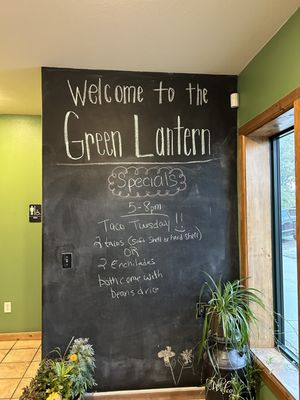 Welcome to the
Green Lantern
Specials
5-8pm
Taco Tuesday !!
2 tacos (soft shell or hard shell)
OR
2 Enchiladas
both come with
beans & rice